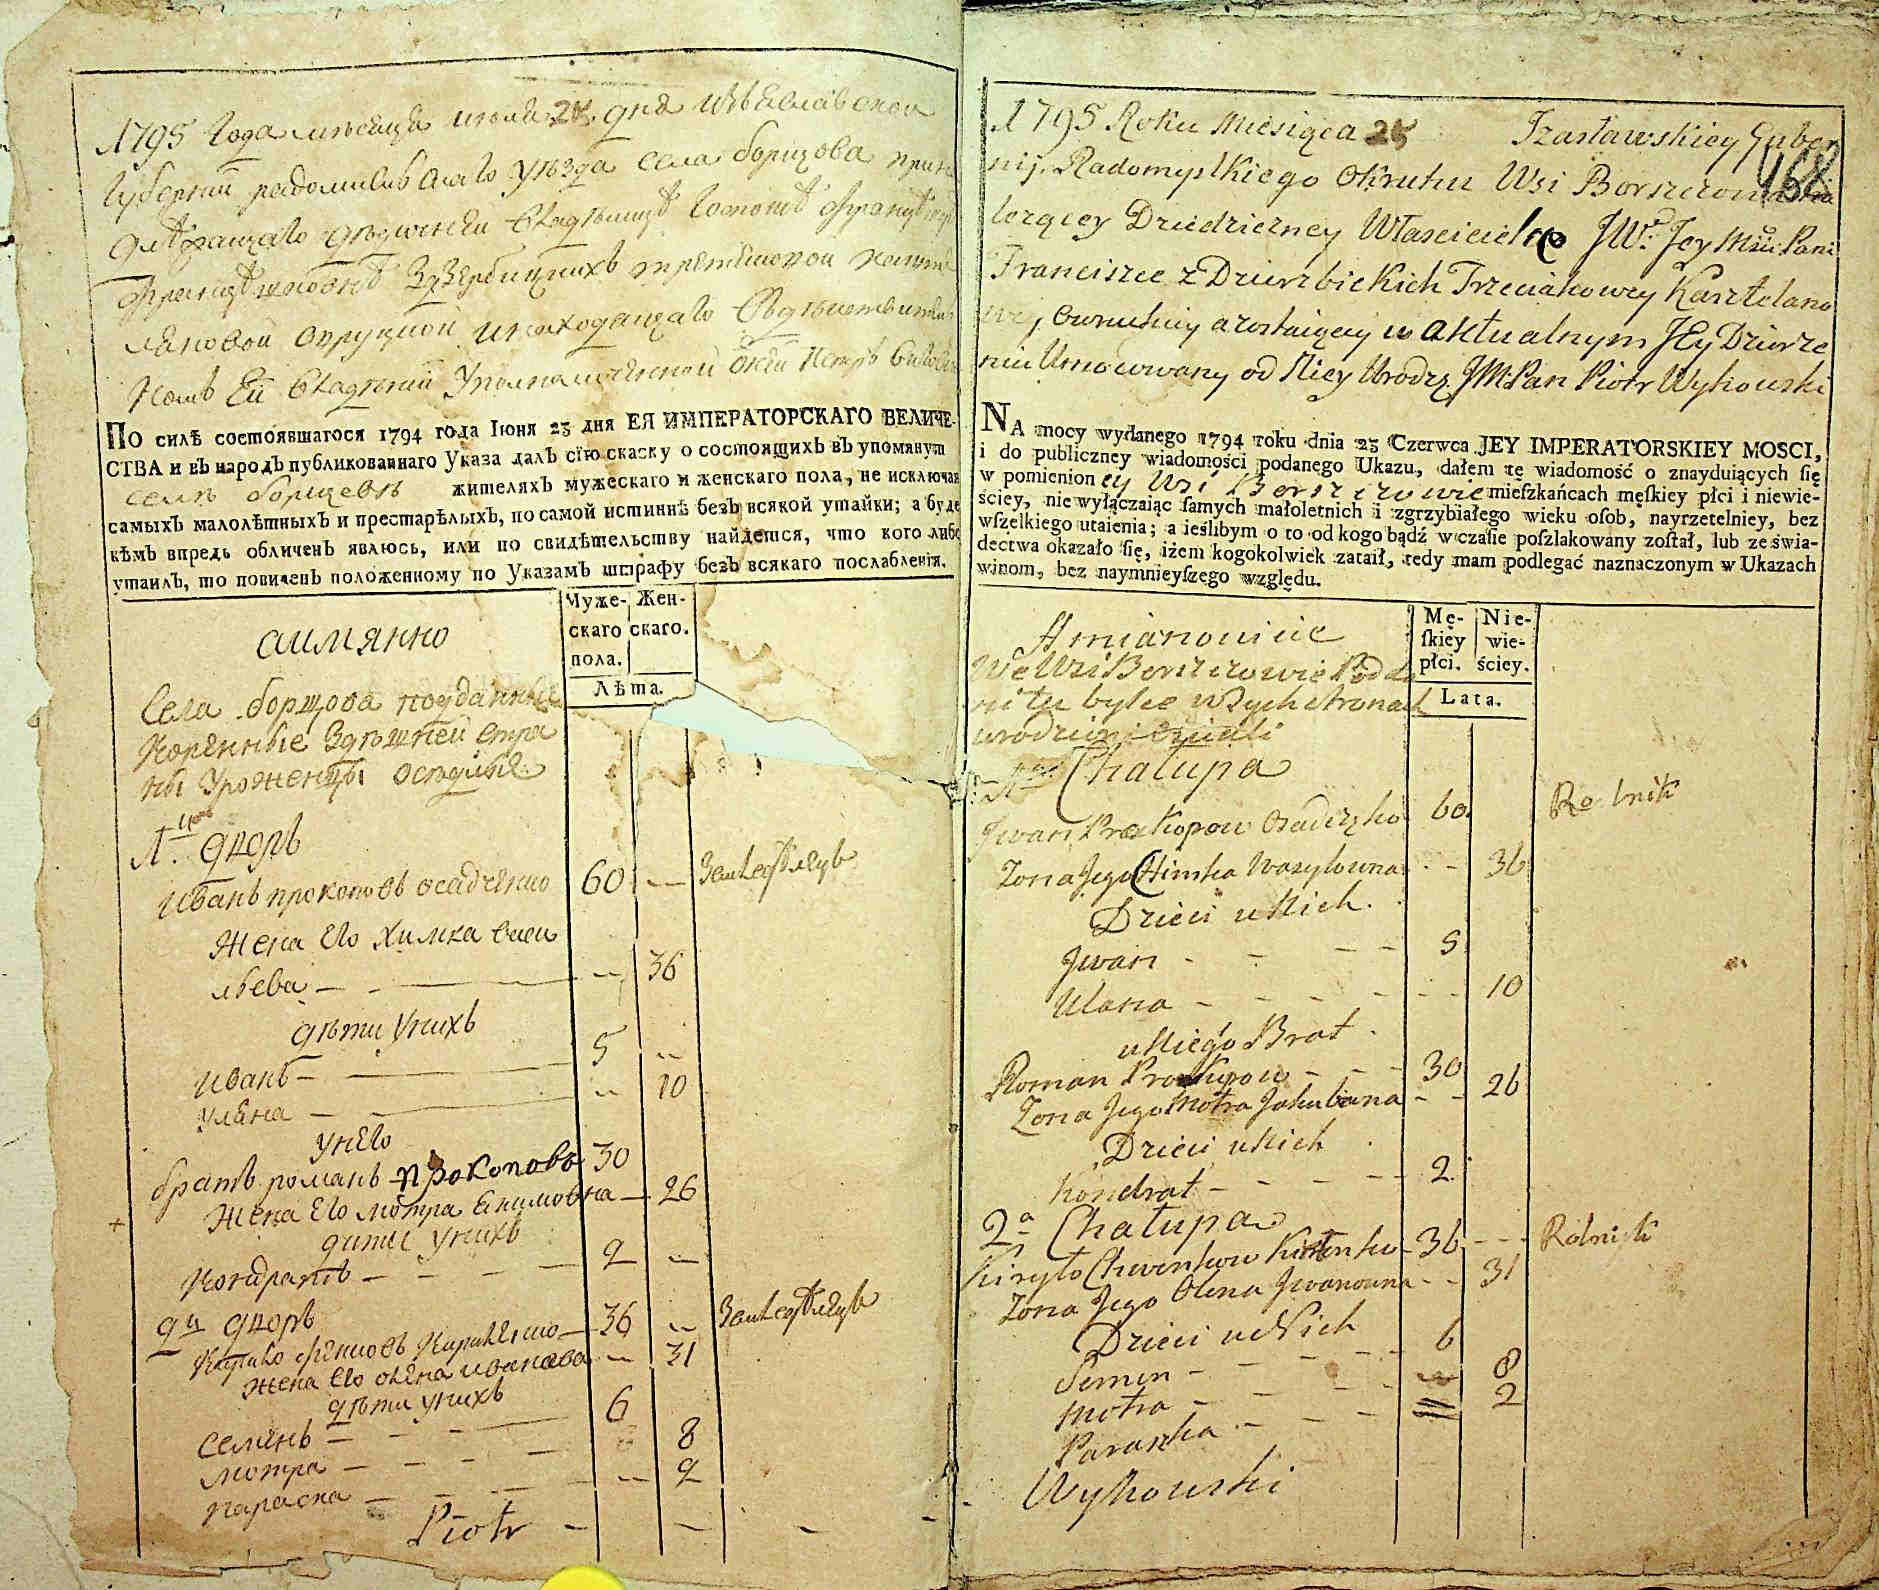 1795 Года месяца июля 24 дня Изъяславской
Губернии радомисльскаго уезда села борщова прин
владетелнице Госпоже
Францишковне Здзербицкихъ
овруцкой инаходящаго
Ей владении Уполномоченной Петръ
ПО силѣ состоявшагося 1794 года Іюня 23 дня ЕЯ ИМПЕРАТОРСКАГО ВЕЛИЧЕ-
СТВА и въ народъ публикованнаго Указа далъ сїю скаску о состоящихъ въ упомянутом
селѣ борщовѣ жителяхъ мужескаго и женскаго пола, не исключая
самыхъ малолѣтныхъ и престарѣлыхъ, по самой истиннѣ безъ всякой утайки; а буде
кѣмъ впредь обличенъ явлюсь, или по свидѣтельству найдется, что кого либо
утаилъ, то повиненъ положенному по Указамъ штрафу безъ всякаго послабленія.
Муже-скаго пола. Жен-скаго.
Лѣта.
аимянно
Села борщова подданные
коренные Здѣшней стра
ны Уроженцы оседлые
дворъ
Иванъ прокоповъ осадченко 60 — Земледелецъ
Жена Его Химка васи
льева — 36
дѣти Унихъ
Иванъ 5 —
уляна — 10
унего
братъ романъ прокоповъ 30
Жена Его мотра Екимовна — 26
дити унихъ
Кондратъ 2 —
2й дворъ
Кирило Кириленко 36 — Земледелецъ
жена Его олена иванова — 31
дѣти унихъ
Семенъ 6
мотра 8
параска — 2
Piotr
1795 Roku Miesiąca 24 Izasławskiey Guber
468
nij. Radomyslkiego Okruhu Wsi Borszczow
lezącey Dziedziczney Właścicielce JW: Jey Mści Pani
Franciszce z Dzierzbickich Trzeciakowey Kasztelano
wey, Owruckiey a zostaiącey w aktualnym JEy Dzierże
niu Umocowany od Niey Urodz. JMPan Piotr Wykowski
NA mocy wydanego 1794 roku dnia 23 Czerwca JEY IMPERATORSKIEY MOSCI,
i do publiczney wiadomości podanego Ukazu, dałem tę wiadomość o znayduiących ſię
w pomienioney Wsi Borszczowie mieſzkańcach męſkiey płci i niewie-
ściey, nie wyłączaiąc ſamych małoletnich i zgrzybiałego wieku oſob, nayrzetelniey, bez
wſzelkiego utaienia; a ieślibym o to od kogo bądź w czaſie poſzlakowany zoſtał, lub ze świa-
dectwa okazało ſię, iżem kogokolwiek zataił, tedy mam podlegać naznaczonym w Ukazach
winom, bez naymnieyſzego względu.
Mę-ſkiey płci. Nie-wie-ściey.
Lata.
Amianowicie
We Wsi Borszczowie Podda
ni tu bylce w tych stronach
urodzeni
Chałupa
Jwan Prokopow Osadczęko 60 Rolnik
Zona Jego Chimka Wasylowna - - 36
Dzieci u Nich.
Jwan - - - - 5
Ulana - - - - - - 10
u Niego Brat
Roman Prokopow - - - 30
Zona Jego Motra Jakubowna - - 26
Dzieci u Nich
Kondrat - - - - - 2
2a Chałupa
Kiryło 36 - - - Rolnik
Zona Jego Olena Jwanowna - - 31
Dzieci u Nich
Semen - - - - - 6
Motra - - - - 8
Paraszka - - - - 2
Wykowski